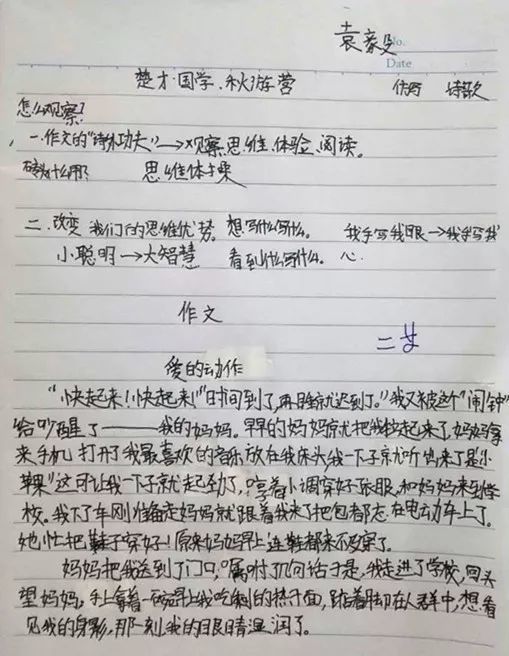 袁毅
No.
Date
楚才·国学·秋游营
作文 诗歌
怎么观察?
一.作文的"诗外功夫"→观察、思维、体验、阅读。
砖有什么用? 思维体操
二.改变我们的思维优势。想写什么写什么。 我手写我眼→我手写我
小聪明→大智慧 看到什么写什么。 心.
作文
二廿
爱的动作
"快起来!快起来!"时间到了,再睡就迟到了。"我又被这个"闹钟"
给吵醒了——我的妈妈。早早的妈妈就把我拉起来了,妈妈拿
来手机打开了我最喜欢的音乐放在我床头我一下子就听出来了是小
苹果"这可让我一下子就起劲了,哼着小调穿好衣服,和妈妈来到学
校。我下了车刚准备走妈妈就跟着我来了把包都忘在电动车上了。
她忙把鞋子穿好!原来妈妈早上连鞋都来不及穿了。
妈妈把我送到了门口,嘱咐几句话于是,我走进了学校,回头
望妈妈,手上拿着一碗早上我吃剩的热干面,踮着脚却在人群中,想看
见我的身影,那一刻,我的眼睛湿润了。